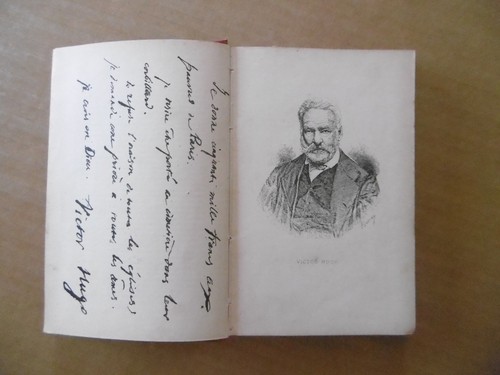 Je donne cinquante mille francs aux
pauvres de Paris.
Je désire être porté au cimetière dans leur
corbillard.
Je refuse l'oraison de toutes les églises;
je demande une prière à toutes les âmes.
Je crois en Dieu.
Victor Hugo
VICTOR HUGO